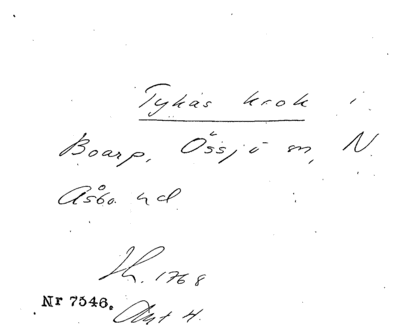 Tykas krok i
Boarp, Össjö sn, N
Åsbo hd
Lh. 1768
Nr 7546.
Akt 4.